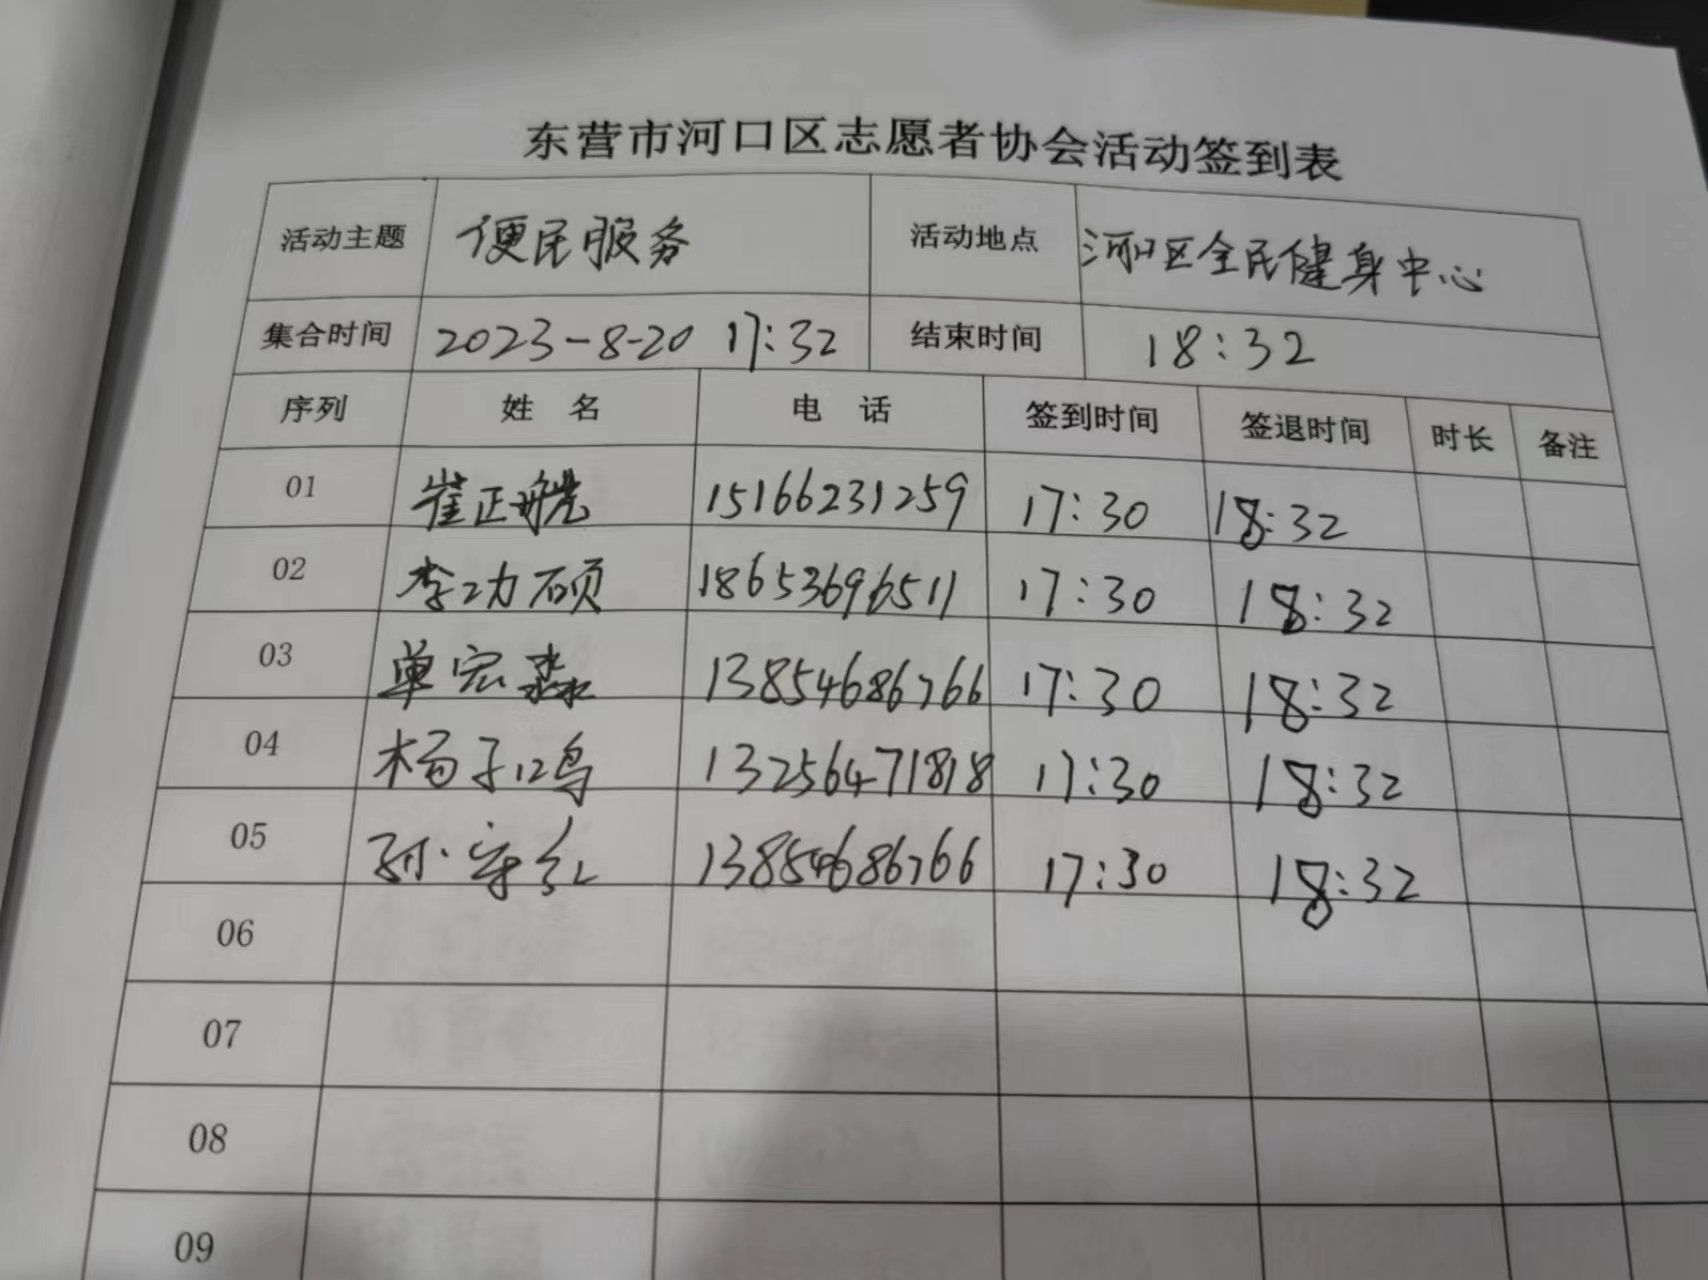 东营市河口区志愿者协会活动签到表
活动主题 便民服务 活动地点 河口区全民健身中心
集合时间 2023-8-20 17:32 结束时间 18:32
序列 姓 名 电 话 签到时间 签退时间 时长 备注
01 崔正 15166231259 17:30 18:32
02 李功硕 18653696511 17:30 18:32
03 单宏淼 13854686766 17:30 18:32
04 杨子鸣 13256471818 17:30 18:32
05 孙守红 13854686766 17:30 18:32
06
07
08
09